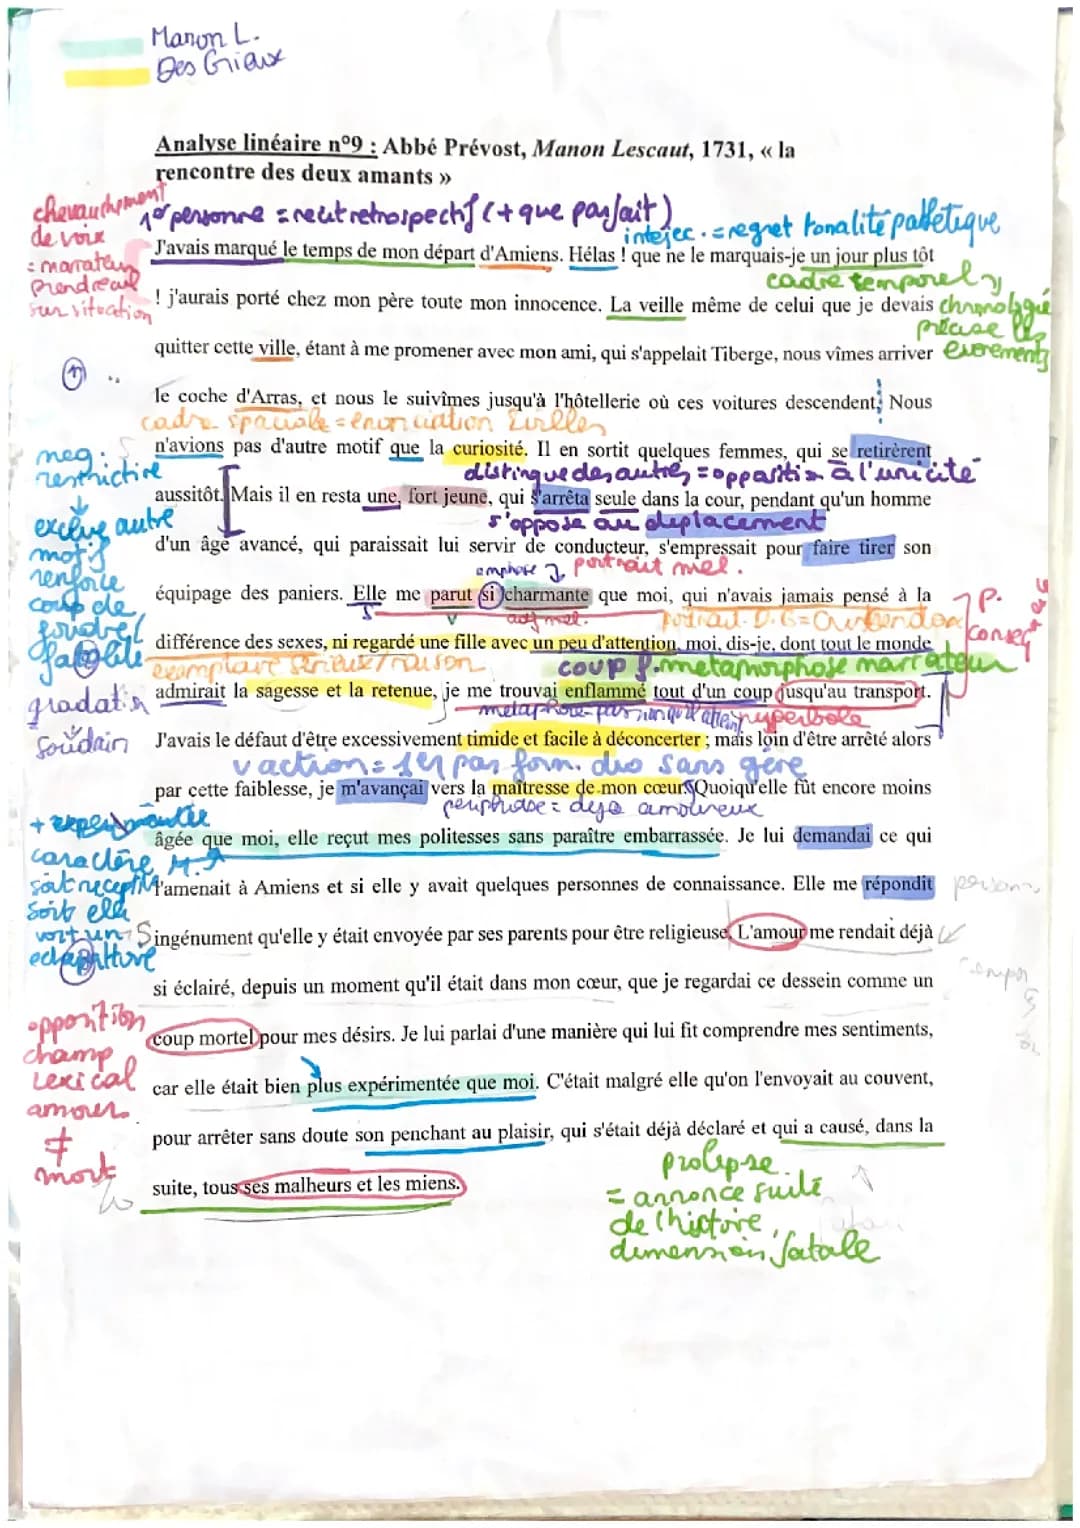 Manon L.
Des Grieux
Analyse linéaire n°9 : Abbé Prévost, Manon Lescaut, 1731, « la
rencontre des deux amants »
chevauchement
de voix
= narrateur
prend recul
sur situation
1e personne = récit retrospectif (+ que parfait)
interjec. = regret tonalité pathétique
J'avais marqué le temps de mon départ d'Amiens. Hélas ! que ne le marquais-je un jour plus tôt
cadre temporel
! j'aurais porté chez mon père toute mon innocence. La veille même de celui que je devais
chronologie
précise les
évenements
quitter cette ville, étant à me promener avec mon ami, qui s'appelait Tiberge, nous vîmes arriver
1
le coche d'Arras, et nous le suivîmes jusqu'à l'hôtellerie où ces voitures descendent. Nous
cadre spatiale = énonciation
n'avions pas d'autre motif que la curiosité. Il en sortit quelques femmes, qui se retirèrent
neg.
restrictive
exclue autre
motif
renforce
coup de
foudre/
fatalité
distingue des autres = opposition à l'unicité
aussitôt. Mais il en resta une, fort jeune, qui s'arrêta seule dans la cour, pendant qu'un homme
s'oppose au deplacement
d'un âge avancé, qui paraissait lui servir de conducteur, s'empressait pour faire tirer son
emphase
portrait mel.
équipage des paniers. Elle me parut si charmante que moi, qui n'avais jamais pensé à la
S
V
adj mel.
portrait D.G =
P.
conseq
différence des sexes, ni regardé une fille avec un peu d'attention, moi, dis-je, dont tout le monde
exemplaire sérieux/raison
coup f. metamorphose narrateur
admirait la sagesse et la retenue, je me trouvai enflammé tout d'un coup jusqu'au transport.
gradation
soudain
métaphore passion qu'il atteint
hyperbole
J'avais le défaut d'être excessivement timide et facile à déconcerter ; mais loin d'être arrêté alors
v action = 1er pas
sans gêne
par cette faiblesse, je m'avançai vers la maîtresse de mon cœur. Quoiqu'elle fût encore moins
periphrase = deja amoureux
+ experimentée
caractère M.
soit receptif
soit elle
voit un
echappatoire
âgée que moi, elle reçut mes politesses sans paraître embarrassée. Je lui demandai ce qui
l'amenait à Amiens et si elle y avait quelques personnes de connaissance. Elle me répondit
ingénument qu'elle y était envoyée par ses parents pour être religieuse. L'amour me rendait déjà
si éclairé, depuis un moment qu'il était dans mon cœur, que je regardai ce dessein comme un
opposition
champ
lexical
amour
≠
mort
coup mortel pour mes désirs. Je lui parlai d'une manière qui lui fit comprendre mes sentiments,
car elle était bien plus expérimentée que moi. C'était malgré elle qu'on l'envoyait au couvent,
pour arrêter sans doute son penchant au plaisir, qui s'était déjà déclaré et qui a causé, dans la
suite, tous ses malheurs et les miens.
prolepse
= annonce suite
de l'histoire,
dimension fatale